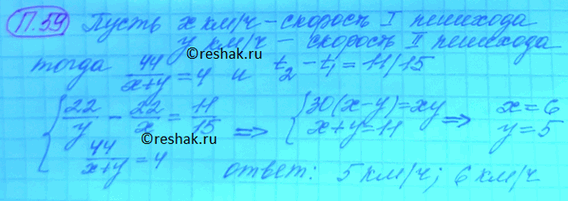 П.59 Пусть x км/ч - скорость I пешехода
y км/ч - скорость II пешехода
тогда 44/(x+y)=4 и t₂-t₁=11/15
©reshak.ru
{ 22/y - 22/x = 11/15 => { 30(x-y)=xy => x=6
44/(x+y)=4 x+y=11 y=5
©reshak.ru
ответ: 5 км/ч; 6 км/ч